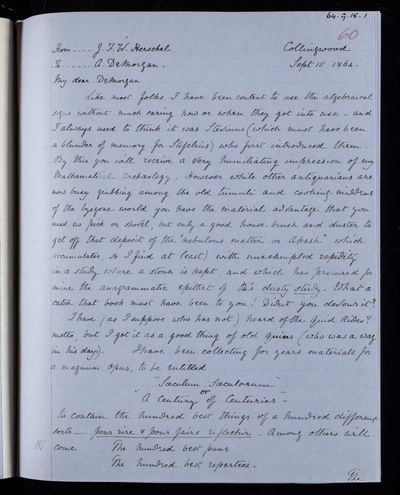 64.9.15.1
60
From .... J. F. W. Herschel Collingwood
To ..... A. DeMorgan. Sept 15 1864.
My dear DeMorgan
Like most folks I have been content to use the algebraical
signs without much caring how or when they got into use - and
I always used to think it was Stevinus (which must have been
a blunder of memory for Stifelius) who first introduced them.
By this you will receive a very humiliating impression of my
Mathematical archæology. However while other antiquarians are
now busy grubbing among the old tumuli and cooking-middens
of the bygone world you have the material advantage that you
need no pick or shovel, but only a good house-brush and duster to
get off that deposit of the "nebulous matter or Akash" which
accumulates, so I find at least) with unexampled rapidity
in a study where a stove is kept and which has procured for
mine the anagrammatic epithet of Pa's dusty study. What a
catch that book must have been to you! Didn't you devour it?
I have (as I suppose who has not) heard of the Quid Rides?
motto but I got it as a good thing of old (who was a wag
in his day). I have been collecting for years materials for
a magnum opus, to be entitled
"Sæculum Sæculorum"
or
"A Century of Centuries" -
to contain the hundred best things of a hundred different
sorts - pour rire & pour faire reflechir. Among others will
come The hundred best puns
The hundred best repartees.
The